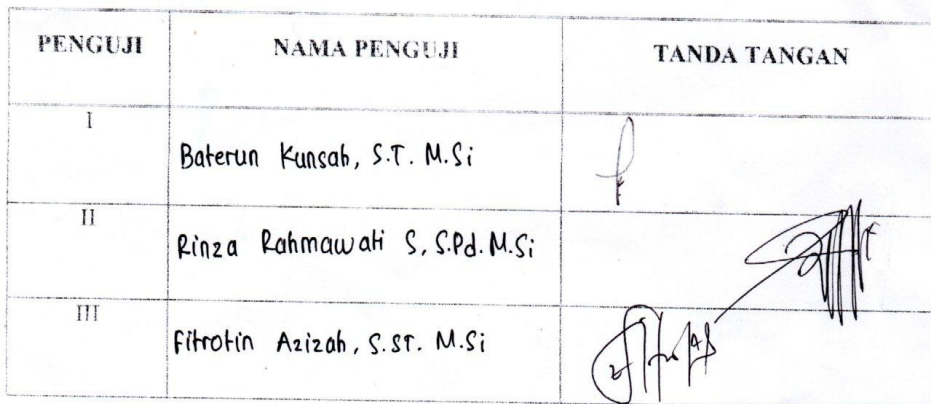 PENGUJI NAMA PENGUJI TANDA TANGAN
I Baterun Kunsah, S.T. M.Si
II Rinza Rahmawati S, S.Pd. M.Si
III Fitrotin Azizah, S.ST. M.Si